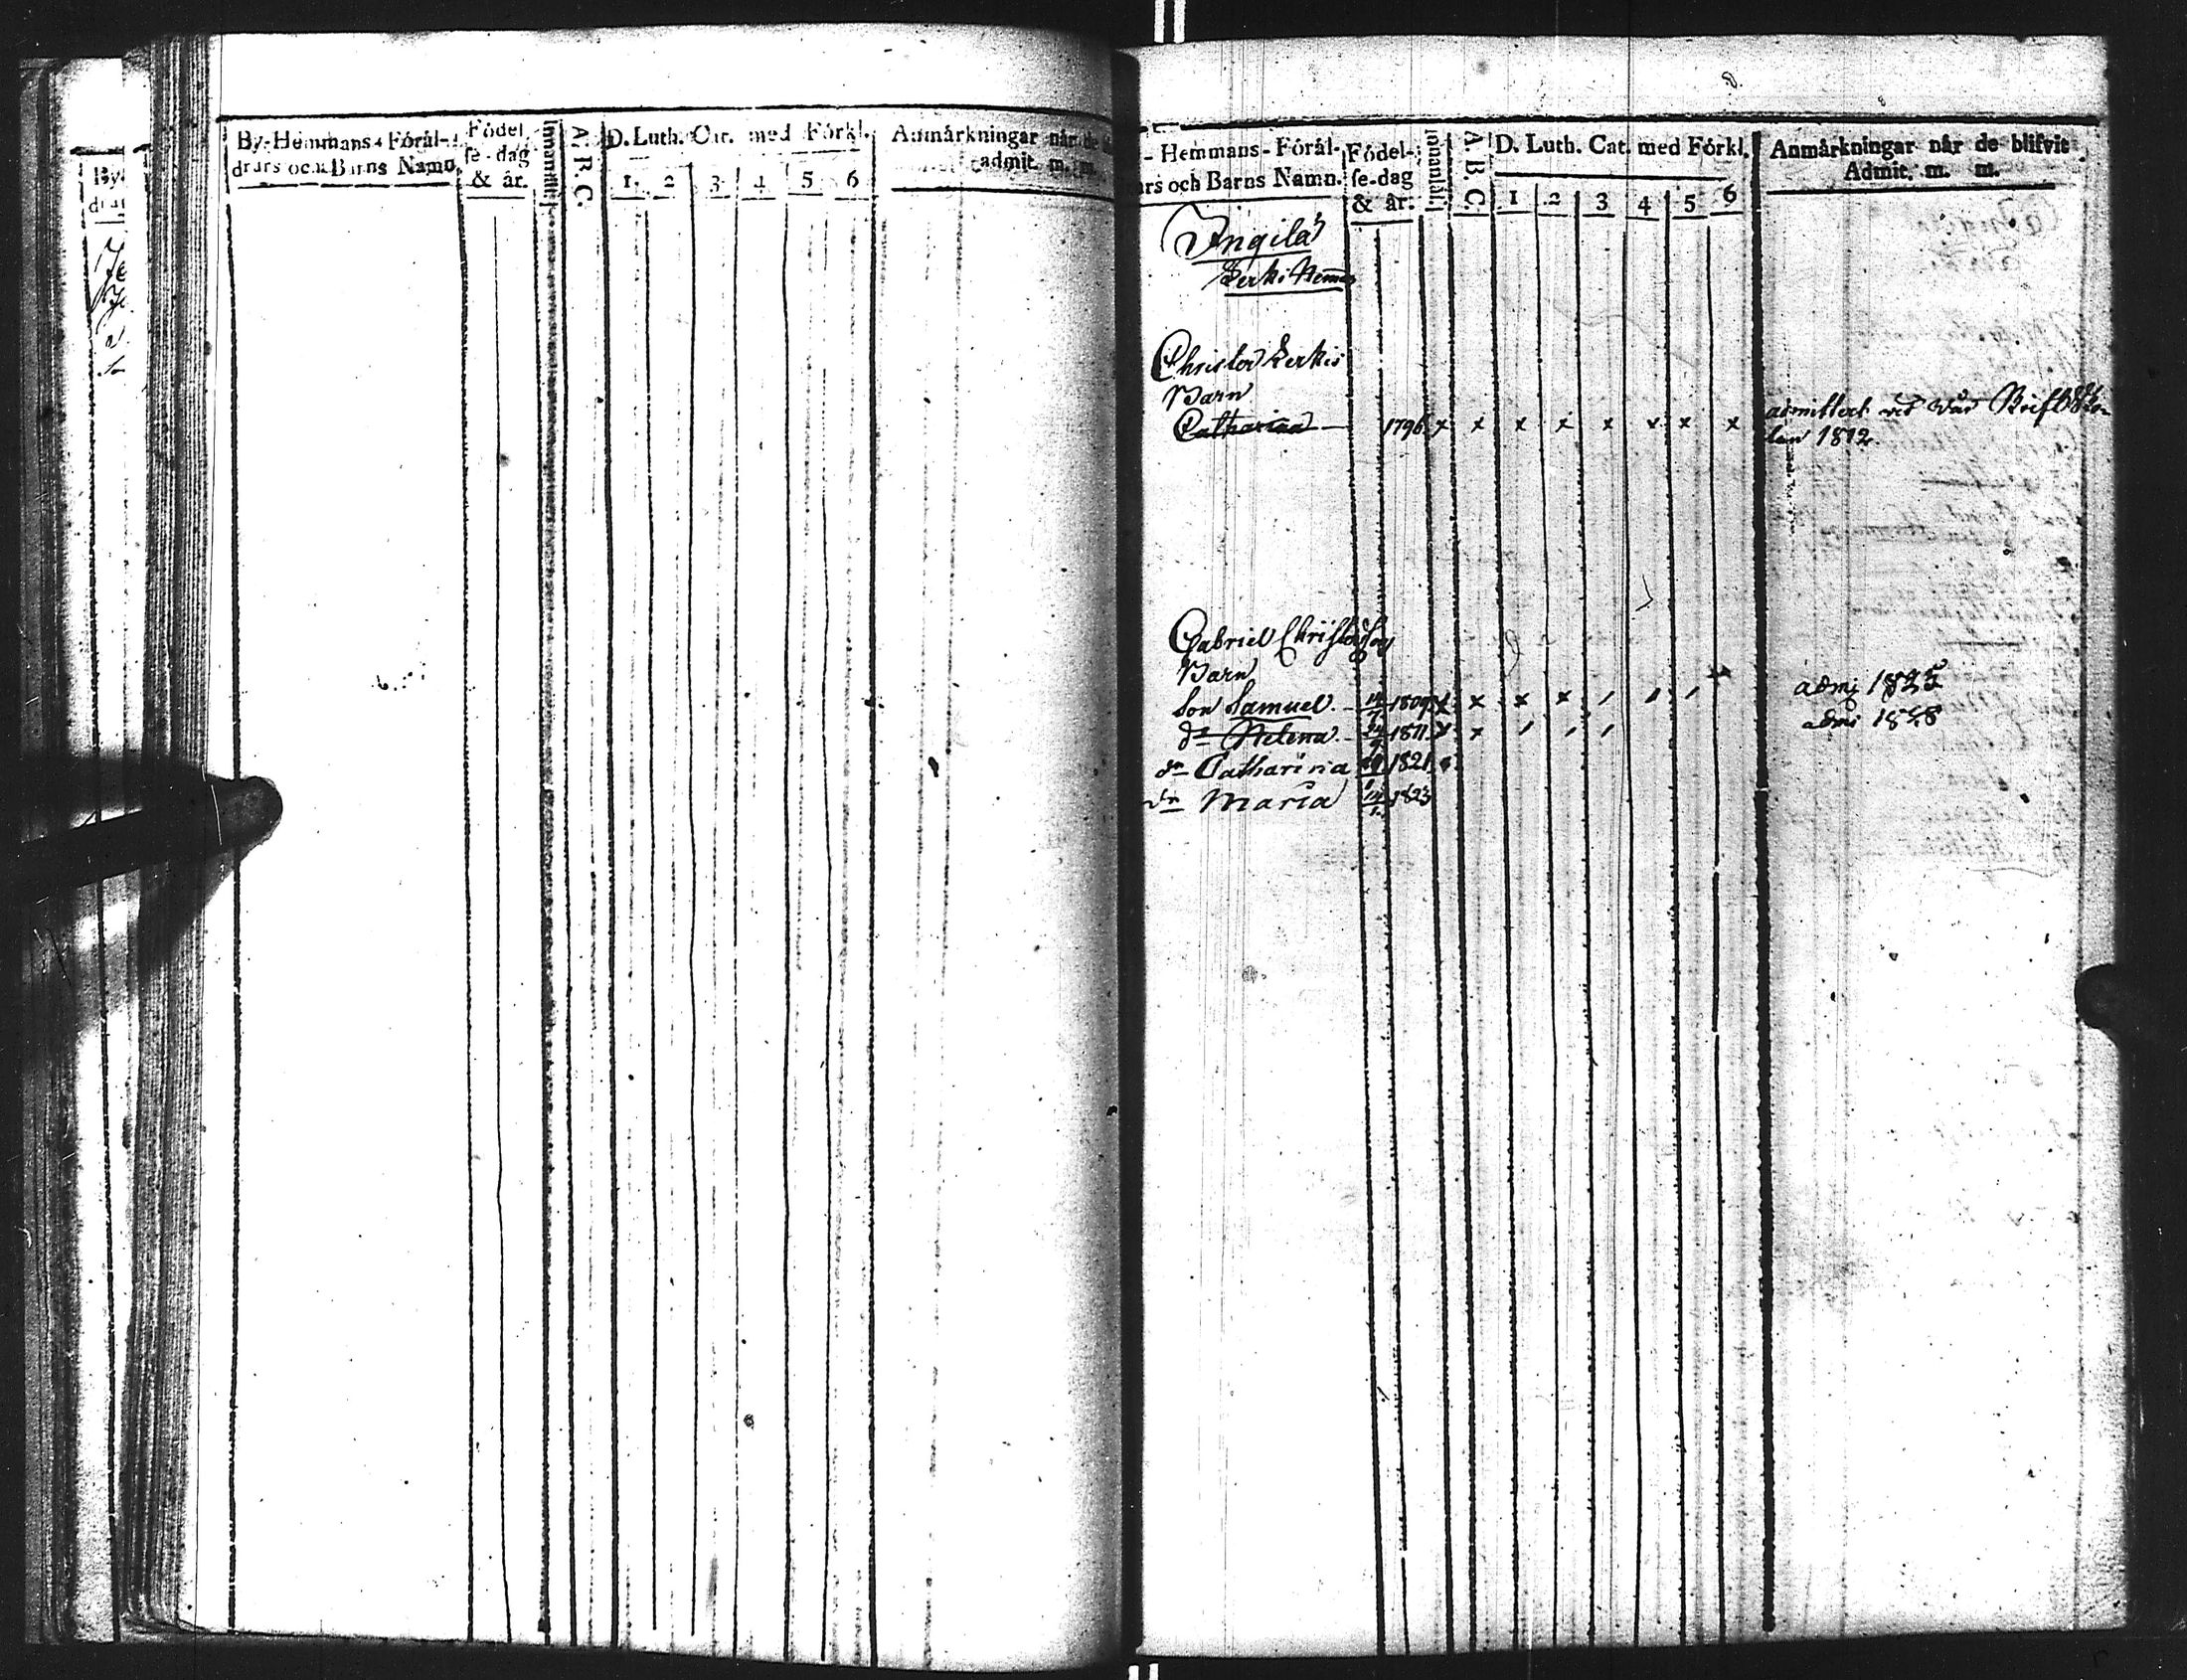 By- Hemmans- Föräl-
drars och Barns Namn.
Födel
se-dag
& år.
Innanläs.
A B C.
D. Luth. Cat. med Förkl.
1. 2 3 4 5 6
Anmärkningar när de
admit. m. m.
- Hemmans- Föräl-
ars och Barns Namn.
Födel-
se-dag
& år.
Innanläs.
A B C
D. Luth. Cat. med Förkl.
1 2 3 4 5 6
Anmärkningar när de blifvit
Admit. m. m.
Ingila
Lerki Hemn
Christer Lerkis
Barn
Catharina 1796 x x x x x x x x admittert vid
1812.
Gabriel Christersson
Barn
Son Samuel. 1809 x x x x admi 1825
dr Helena. 1811 x x admi 1828
dr Catharina 1821
dr Maria 1823